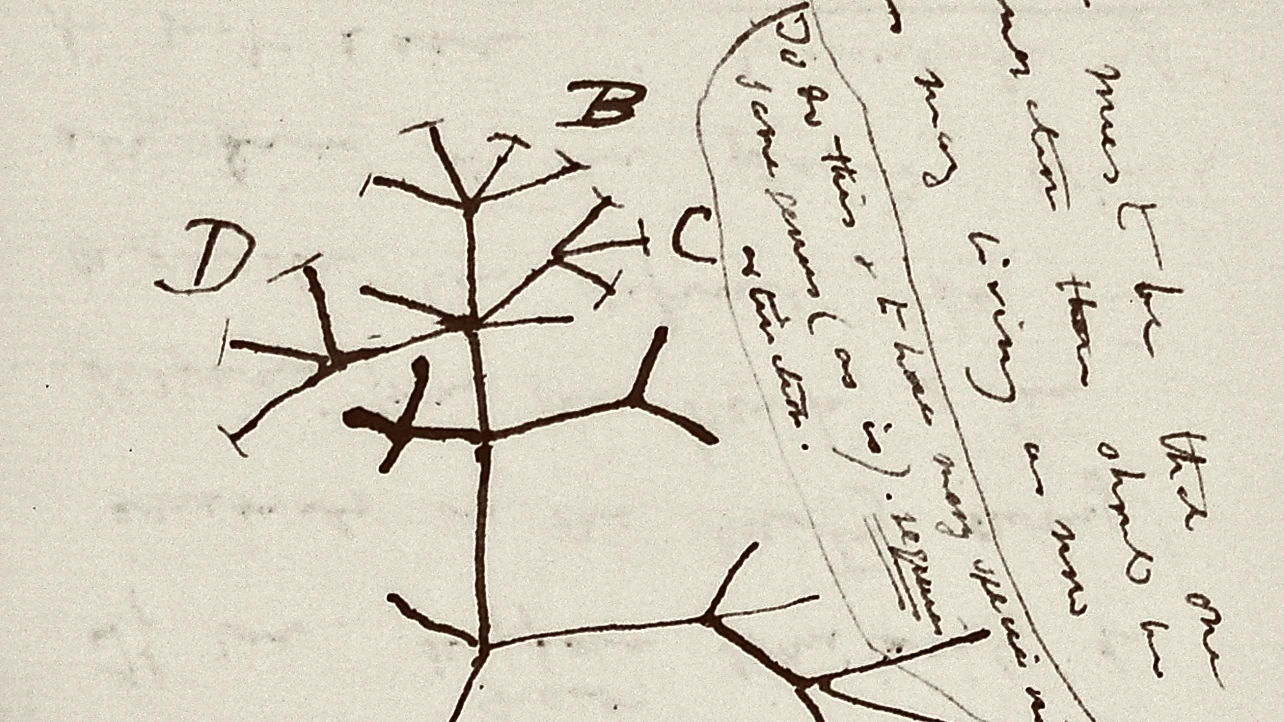 B
C
D
must be that one
then should be
many living as now
To do this & to have many species in
same genus (as is). requires
extinction.